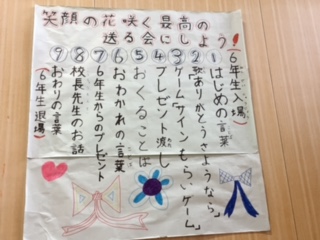 笑顔の花咲く最高の
送る会にしよう!
(6年生入場)
①はじめの言葉
②歌「ありがとうさようなら」
③ゲーム「サインもらいゲーム」
④プレゼント渡し
⑤おくることば
⑥おわかれの言葉
⑦6年生からのプレゼント
⑧校長先生のお話
⑨おわりの言葉
(6年生退場)